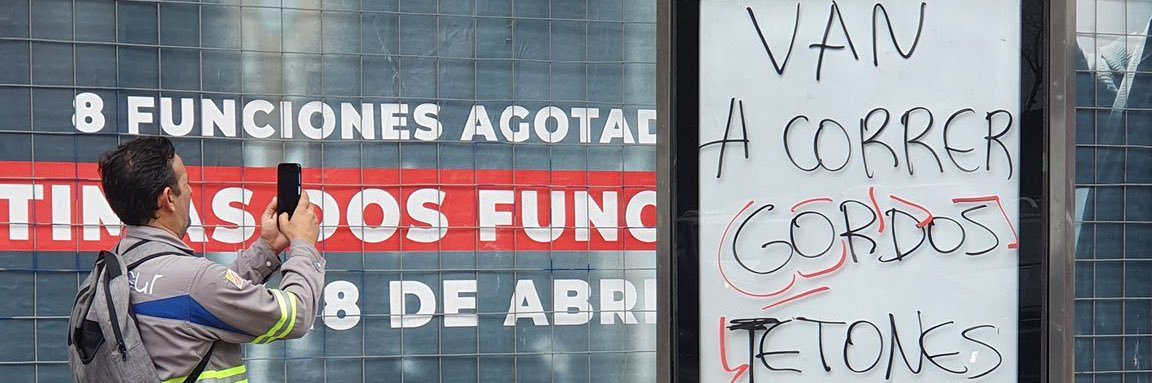 8 FUNCIONES AGOTAD
TIMAS DOS FUNC
8 DE ABRI
VAN
A CORRER
GORDOS
TETONES
ur